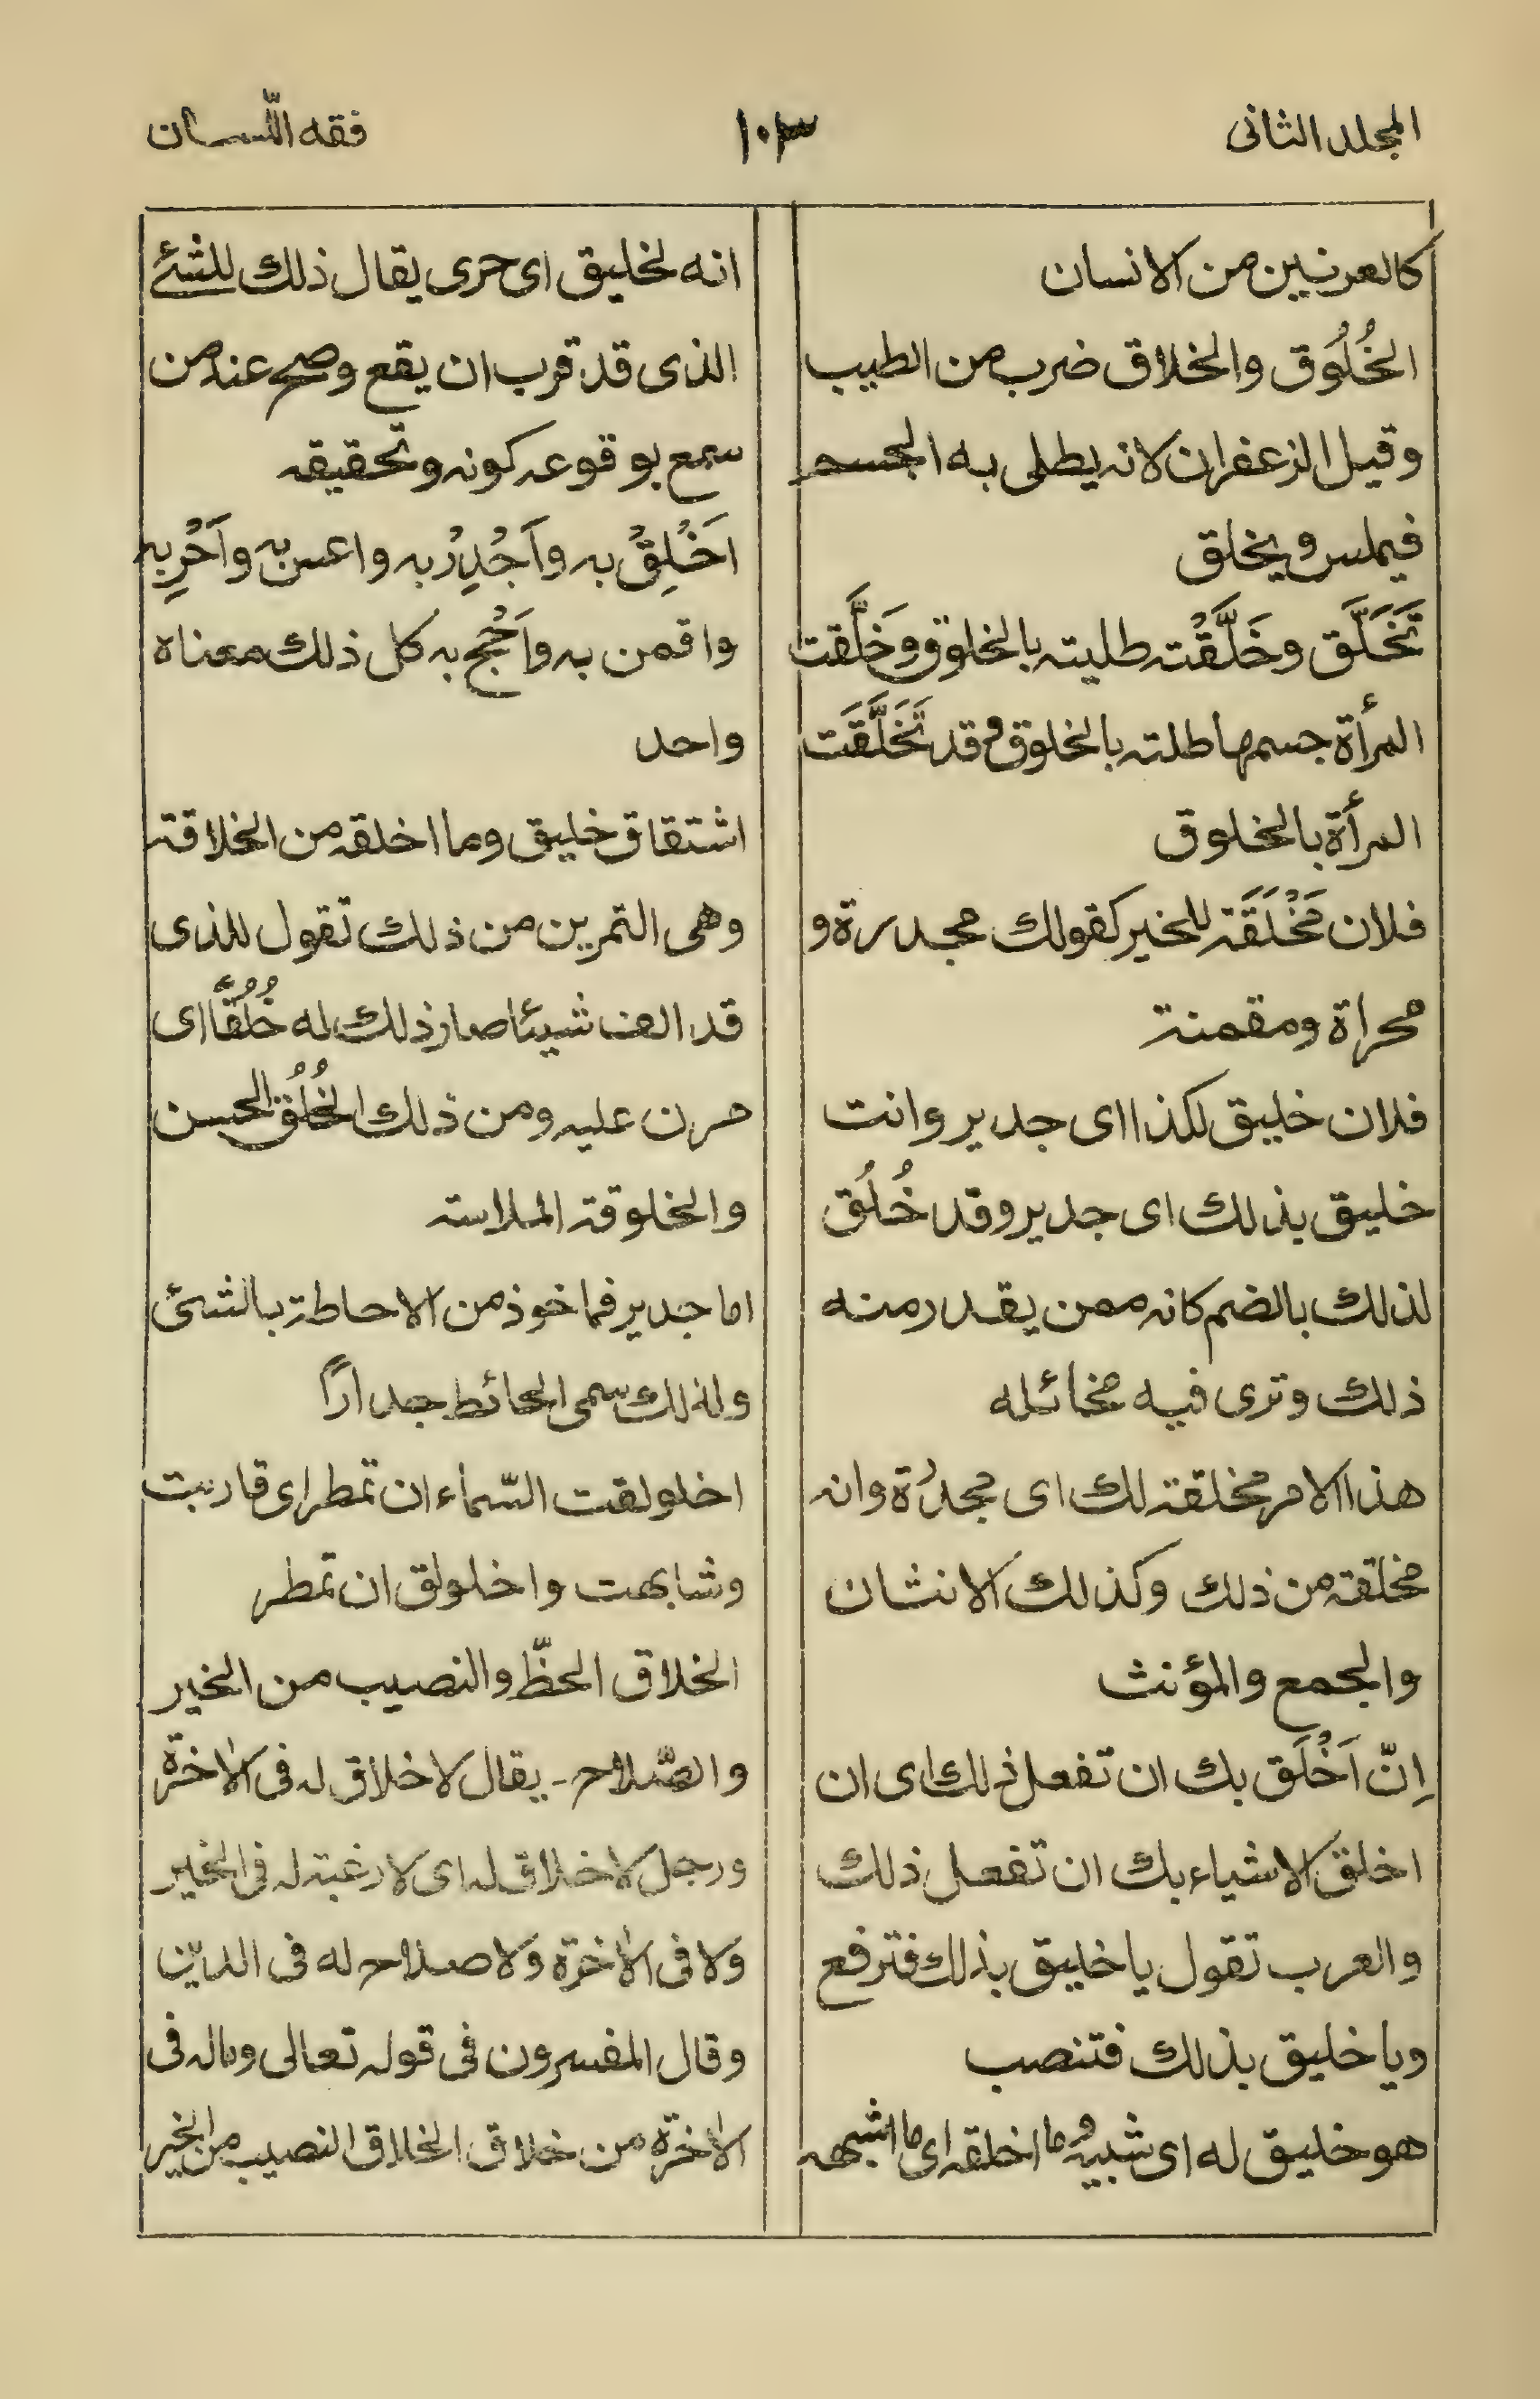 المجلد الثانى
١٠٣
فقه اللّسان
كالعرنين من الانسان
الخُلُوق والخلاق ضرب من الطيب
وقيل الزعفران لانه يطلى به الجسم
فيملس ويخلق
تَخَلَّق وخَلَّقْته طليته بالخلوق وخَلَّقت
المرأة جسمها طلته بالخلوق وقد تَخَلَّقَت
المرأة بالخلوق
فلان مَخْلَقَة للخير كقولك مجدرة و
محراة ومقمنة
فلان خليق لكذا اى جدير وانت
خليق بذلك اى جدير وقد خُلُق
لذلك بالضم كانه ممن يقدر منه
ذلك وترى فيه مخائله
هذا الامر مخلقة لك اى مجدرة وانه
مخلقة من ذلك وكذلك الانثان
والجمع والمؤنث
اِنّ اَخْلَق بك ان تفعل ذلك اى ان
اخلق الاشياء بك ان تفعل ذلك
والعرب تقول يا خليق بذلك فترفع
ويا خليق بذلك فتنصب
هو خليق له اى شبيه وما اخلقه اى ما اشبهه
انه لخليق اى حرى يقال ذلك للشئ
الذى قد قرب ان يقع وصح عند من
سمع بوقوعه كونه وتحقيقه
اَخْلِقْ به واَجْدِرْ به واعس به واَحْرِ به
واقمن به واَحْجِ به كل ذلك معناه
واحد
اشتقاق خليق وما اخلقه من الخلاقة
وهى التمرين من ذلك تقول للذى
قد الف شيئا صار ذلك له خُلُقًا اى
مرن عليه ومن ذلك الخُلُق الحسن
والخلوقة الملاسة
اما جدير فماخوذ من الاحاطة بالشئ
ولذلك سمى الحائط جداراً
اخلولقت السّماء ان تمطر اى قاربت
وشابهت واخلولق ان تمطر
الخلاق الحظّ والنصيب من الخير
والصّلاح - يقال لا خلاق له فى الاخرة
ورجل لا خلاق له اى لا رغبة له فى الخير
ولا فى الاخرة ولا صلاح له فى الدين
وقال المفسرون فى قوله تعالى وماله فى
الاخرة من خلاق الخلاق النصيب من الخير